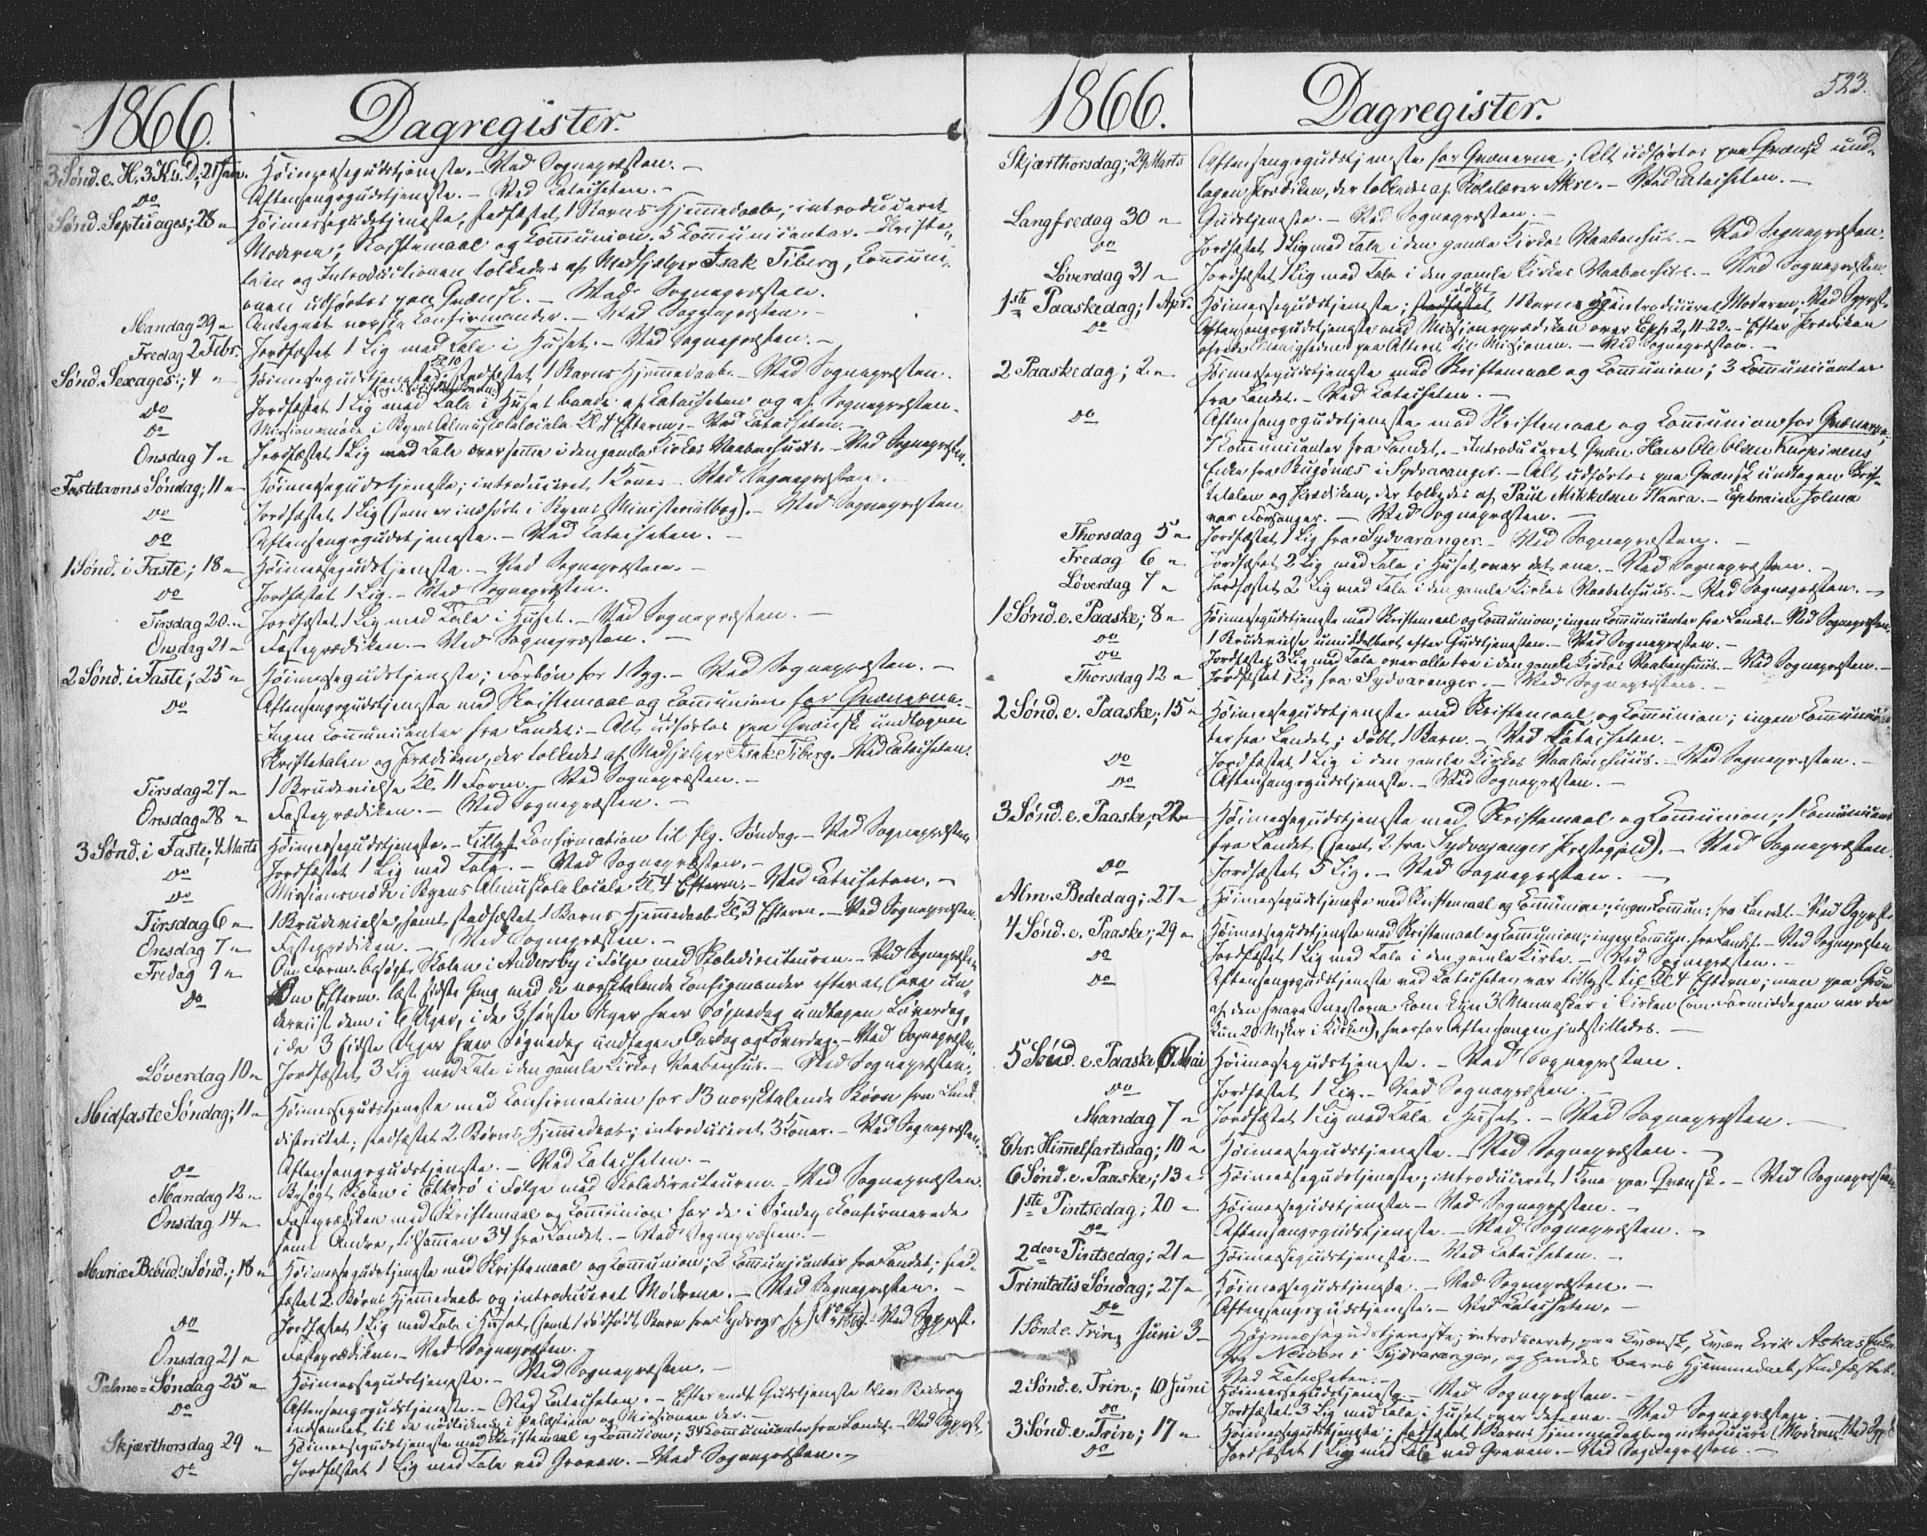 1866. Dagregister.
3 Sønd. e. H. 3 K. D.; 21 Jan. Høimessegudstjeneste. - Ved Sognepræsten. -
Do Aftensangsgudstjeneste. - Ved Catecheten. -
Sønd. Septuages; 28 " Høimessegudstjeneste; stadfæstet 1 Barns Hjemmedaab; introduceret
Moderen; Skriftemaal og Communion. 5 Communicanter. - Skrifte-
talen og Introductionen tolkedes af Medhjælper Isak Tiberg, Communi-
onen udførtes paa Qvænsk. - Ved Sognepræsten.
Mandag 29 " Antegnet norske Confirmander. - Ved Sognepræsten. -
Fredag 2 Febr. Jordfæstet 1 Lig med Tale i Huset. - Ved Sognepræsten. -
Sønd. Sexages; 4 " Høimessegudstjeneste; stadfæstet 1 Barns Hjemmedaab. - Ved Sognepræsten.
Do Jordfæstet 1 Lig med Tale i Huset baade af Catecheten og af Sognepræsten. -
Do Missionsmøde i Byens Almueskolelocale Kl. 4 Efterm. - Ved Catecheten. -
Onsdag 7 " Jordfæstet 1 Lig med Tale over samme i den gamle Kirkes Vaabenhuus. - Ved Sognepræsten.
Fastelavns Søndag; 11 " Høimessegudstjeneste; introduceret 1 Kone. - Ved Sognepræsten. -
Do Jordfæstet 1 Lig (som er indført i Byens Ministerialbog). - Ved Sognepræsten.
Do Aftensangsgudstjeneste. - Ved Catecheten. -
1 Sønd. i Faste; 18 " Høimessegudstjeneste. - Ved Sognepræsten. -
Do Jordfæstet 1 Lig. - Ved Sognepræsten.
Tirsdag 20 " Jordfæstet 1 Lig med Tale i Huset. - Ved Sognepræsten. -
Onsdag 21 " Fasteprædiken. - Ved Sognepræsten. -
2 Sønd. i Faste; 25 " Høimessegudstjeneste; Forbøn for 1 Syg. - Ved Sognepræsten. -
Do Aftensangsgudstjeneste med Skriftemaal og Communion for Qvænerne. -
Ingen Communicanter fra Landet. - Alt udførtes paa Qvænsk undtagen
Skriftetalen og Prædiken, der tolkedes af Medhjælper Isak Tiberg. - Ved Catecheten.
Tirsdag 27 " 1 Brudevielse Kl. 11 Form. - Ved Sognepræsten. -
Onsdag 28 " Fasteprædiken. - Ved Sognepræsten. -
3 Sønd. i Faste; 4 Marts Høimessegudstjeneste. - Tillyst Confirmation til flg. Søndag. - Ved Sognepræsten
Do Jordfæstet 1 Lig med Tale. - Ved Sognepræsten. -
Do Missionsmøde i Byens Almueskolelocale Kl. 4 Efterm. - Ved Catecheten. -
Tirsdag 6 " 1 Brudevielse, samt stadfæstet 1 Barns Hjemmedaab Kl. 3 Efterm. - Ved Sognepræsten.
Onsdag 7 " Fasteprædiken. - Ved Sognepræsten. -
Fredag 9 " Om Form. besøgt Skolen i Andersby i Følge med Skoledirecteuren. - Ved Sognepræsten
Do Om Efterm. læst sidste Gang med de norsktalende Confirmander efter at have un-
derviist dem i 6 Uger, i de 3 første Uger hver Søgnedag undtagen Løverdag,
i de 3 sidste Uger hver Søgnedag undtagen Onsdag og Løverdag. - Ved Sognepræsten.
Løverdag 10 " Jordfæstet 3 Lig med Tale i den gamle Kirkes Vaabenhus. - Ved Sognepræsten.
Midfaste Søndag; 11 " Høimessegudstjeneste med Confirmation for 13 norsktalende Børn fra Land-
districtet; stadfæstet 2 Børns Hjemmedaab; introduceret 3 Koner. - Ved Sognepræsten.
Do Aftensangsgudstjeneste. - Ved Catecheten. -
Mandag 12 " Besøgt Skolen i Ekkerø i Følge med Skoledirecteuren. - Ved Sognepræsten
Onsdag 14 " Fasteprædiken med Skriftemaal og Communion for de i Søndag Confirmerede
samt Andre, tilsammen 34 fra Landet. - Ved Sognepræsten. -
Mariæ Bebud. Sønd.; 18 " Høimessegudstjeneste med Skriftemaal og Communion; 2 Communicanter fra Landet; stad-
fæstet 2 Børns Hjemmedaab og introduceret Mødrene. - Ved Sognepræsten. -
Do Jordfæstet 1 Lig med Tale i Huset, (samt 1 dødfødt Barn fra Sydvrgr - Ved Sgpræst.
Onsdag 21 " Fasteprædiken. - Ved Sognepræsten.
Palme-Søndag 25 " Høimessegudstjeneste. - Ved Sognepræsten. -
Do Aftensangsgudstjeneste. - Ved Catecheten. - Efter endt Gudstjeneste blev Bidrag
indsamlet til de nødlidende i Palæstina og Missionen der. -
Skjærthorsdag 29 " Høimessegudstjeneste med Skriftemaal og Communion; 34 Communicanter fra Landet. - Ved Sgpræst.
Do Jordfæstet 1 Lig med Tale ved Graven. - Ved Sognepræsten. -
1866. Dagregister. 523.
Skjærthorsdag; 29 Marts Aftensangsgudstjeneste for Qvænerne; Alt udførtes paa Qvænsk und-
tagen Prædiken, der tolkedes af Skolelærer Akre. - Ved Catecheten. -
Langfredag 30 " Gudstjeneste. - Ved Sognepræsten. -
Do Jordfæstet 1 Lig med Tale i den gamle Kirkes Vaabenhus. - Ved Sognepræsten.
Løverdag 31 " Jordfæstet 1 Lig med Tale i den gamle Kirkes Vaabenhus. - Ved Sognepræsten.
1ste Paaskedag; 1 Apr. Høimessegudstjeneste; døbt 1 Barn og introduceret Moderen. Ved Sgpræst.
Do Aftensangsgudstjeneste med Missionsprædiken over Eph. 2, 11-22. - Efter Prædiken
ofrede Menigheden paa Alteret til Missionen. - Ved Sognepræsten. -
2 Paaskedag; 2 " Høimessegudstjeneste med Skriftemaal og Communion; 3 Communicanter
fra Landet. - Ved Catecheten. -
Do Aftensangsgudstjeneste med Skriftemaal og Communion for Qvænerne;
Communicanter fra Landet. - Introduceret Qvæn Hans Ole Olsen Kurpinens
Enke fra Bugønæs i Sydvaranger. - Alt udførtes paa Qvænsk undtagen Skrif-
tetalen og Prædiken, der tolkedes af Paul Mikkelsen Harra. - Ephraim Jolma
var Forsanger. - Ved Sognepræsten. -
Thorsdag 5 " Jordfæstet 1 Lig fra Sydvaranger. - Ved Sognepræsten. -
Fredag 6 " Jordfæstet 2 Lig med Tale i Huset over det ene. - Ved Sognepræsten. -
Løverdag 7 " Jordfæstet 2 Lig med Tale i den gamle Kirkes Vaabenhuus. - Ved Sognepræsten. -
1 Sønd. e. Paaske; 8 " Høimessegudstjeneste med Skriftemaal og Communion; ingen Communicanter fra Landet. - Ved Sognepræsten.
Do 1 Brudevielse umiddelbart efter Gudstjenesten. - Ved Sognepræsten. -
Do Jordfæstet 3 Lig med Tale over alle tre i den gamle Kirkes Vaabenhuus. - Ved Sognepræsten. -
Thorsdag 12 " Jordfæstet 1 Lig fra Sydvaranger. - Ved Sognepræsten. -
2 Sønd. e. Paaske; 15 " Høimessegudstjeneste med Skriftemaal og Communion; ingen Communican-
ter fra Landet; døbt 1 Barn. - Ved Catecheten. -
Do Jordfæstet 1 Lig i den gamle Kirkes Vaabenhuus. - Ved Sognepræsten. -
Do Aftensangsgudstjeneste. - Ved Sognepræsten. -
3 Sønd. e. Paaske; 22 " Høimessegudstjeneste med Skriftemaal og Communion; 1 Communicant
fra Landet (samt 2 fra Sydvaranger Præstegjeld). - Ved Sognepræsten.
Do Jordfæstet 5 Lig. - Ved Sognepræsten. -
Alm. Bededag; 27 " Høimessegudstjeneste med Skriftemaal og Communion; ingen Commun. fra Landet. - Ved Sgpræst.
4 Sønd. e. Paaske; 29 " Høimessegudstjeneste med Skriftemaal og Communion; ingen Commun. fra Landet. - Ved Sognepræsten
Do Jordfæstet 1 Lig med Tale i den gamle Kirke. - Ved Sognepræsten. -
Do Aftensangsgudstjeneste ved Catecheten var tillyst til Kl. 4 Efterm.; men paa Grund
af den svare Snestorm kom kun 3 Mennesker i Kirken (om Formiddagen var der
kun 20 Msker i Kirken), hvorfor Aftensangen indstilledes. -
5 Sønd. e. Paaske 6 Mai Høimessegudstjeneste. - Ved Sognepræsten.
Do Jordfæstet 1 Lig. - Ved Sognepræsten. -
Mandag 7 " Jordfæstet 1 Lig med Tale i Huset. - Ved Sognepræsten. -
Chr. Himmelfartsdag; 10 " Høimessegudstjeneste. - Ved Sognepræsten. -
6 Sønd. e. Paaske; 13 " Høimessegudstjeneste; introduceret 1 Kone paa Qvænsk. - Ved Sognepræsten.
1ste Pintsedag; 20 " Høimessegudstjeneste. - Ved Sognepræsten. -
Do Aftensangsgudstjeneste. - Ved Sognepræsten. -
2den Pintsedag; 21 " Høimessegudstjeneste. - Ved Catecheten. -
Trinitatis Søndag; 27 " Høimessegudstjeneste. - Ved Sognepræsten. -
Do Aftensangsgudstjeneste. - Ved Catecheten. -
1 Sønd. e. Trin; Juni 3 - Høimessegudstjeneste; introduceret, paa Kvænsk, Kvæn Erik Askas Enke
fra Neiden i Sydvaranger, og hendes Barns Hjemmedaab stadfæstet.
Ved Catecheten. -
2 Sønd. e. Trin.; 10 Juni Høimessegudstjeneste. - Ved Sognepræsten. -
Do Jordfæstet 3 Lig med Tale i Huset over det ene. - Ved Sognepræsten. -
3 Sønd. e. Trin; 17 " Høimessegudstjeneste; stadfæstet 1 Barns Hjemmedaab og introduceret Moderen. - Ved Sgpræst
Do Jordfæstet 1 Lig med Tale ved Graven. - Ved Sognepræsten. -